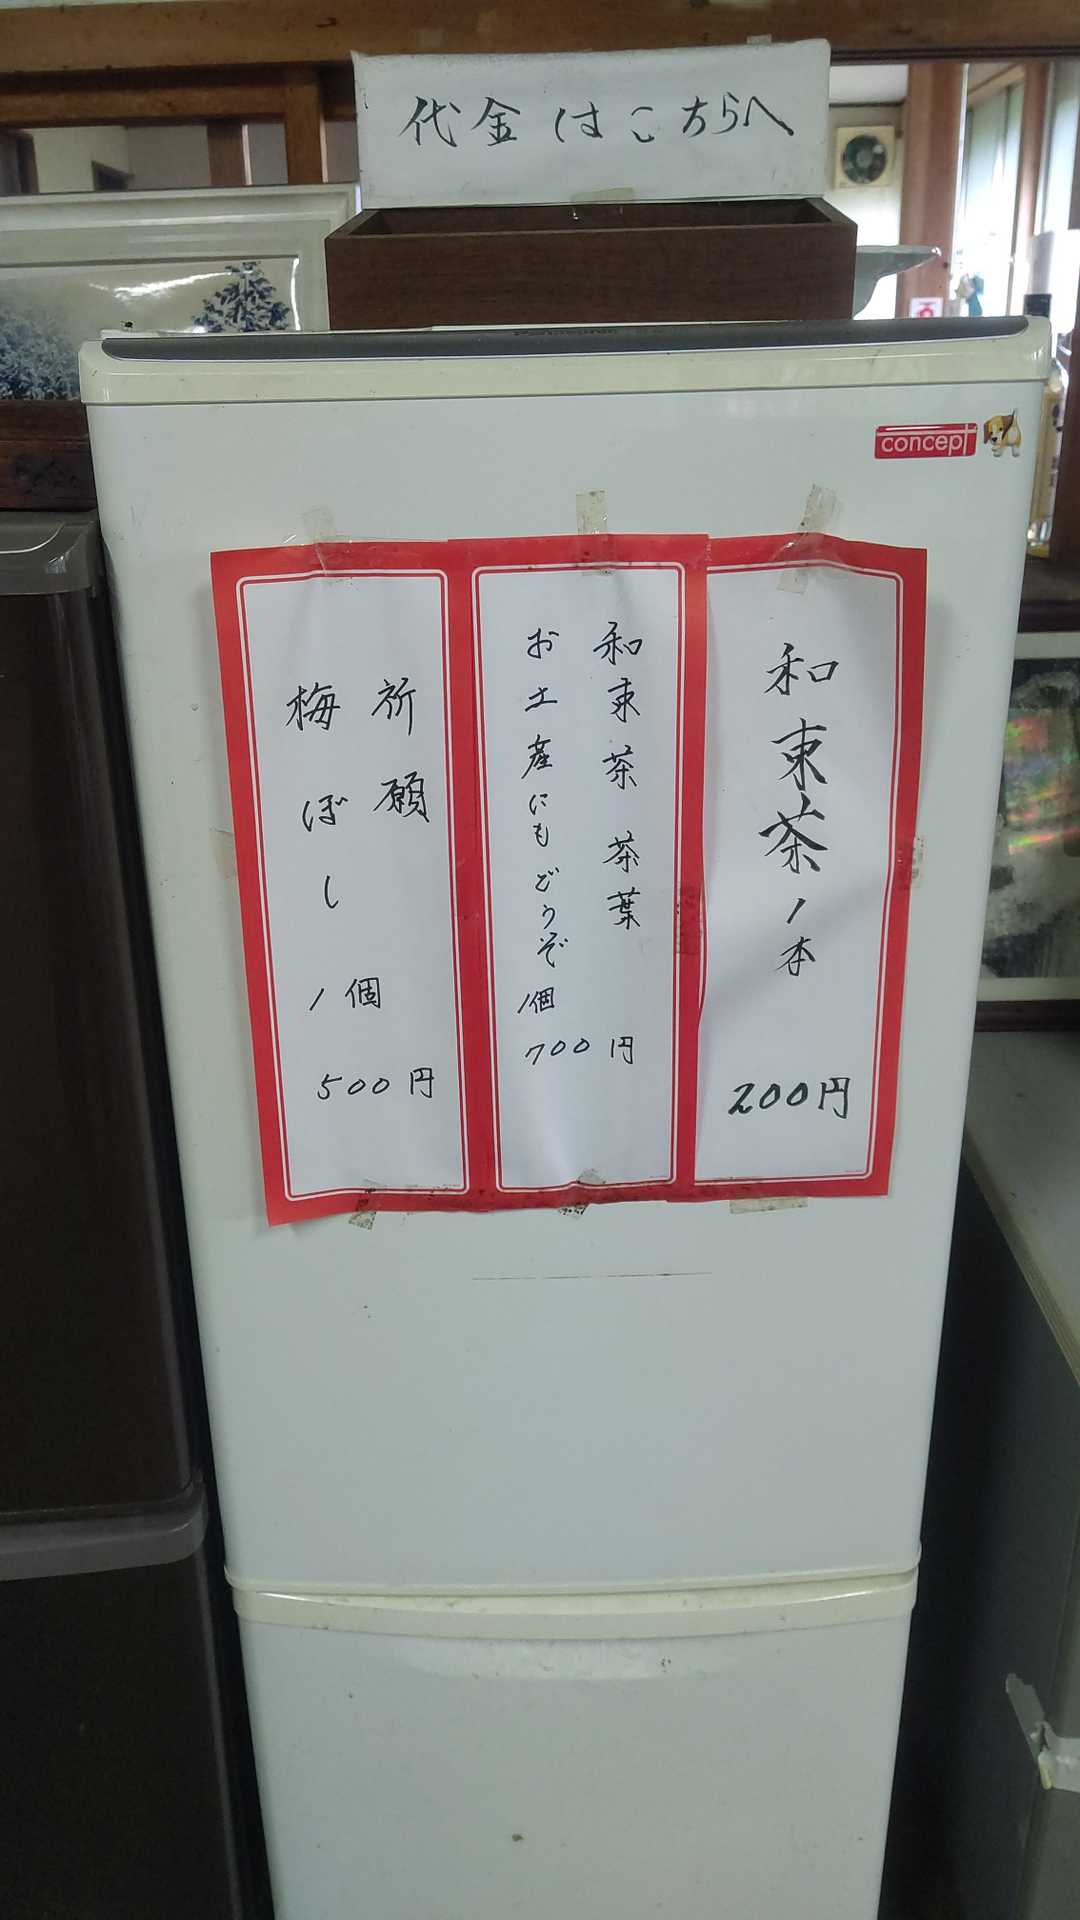 代金はこちらへ
concept
和束茶1本
200円
和束茶茶葉
お土産にもどうぞ1個
700円
祈願
梅ぼし1個
500円